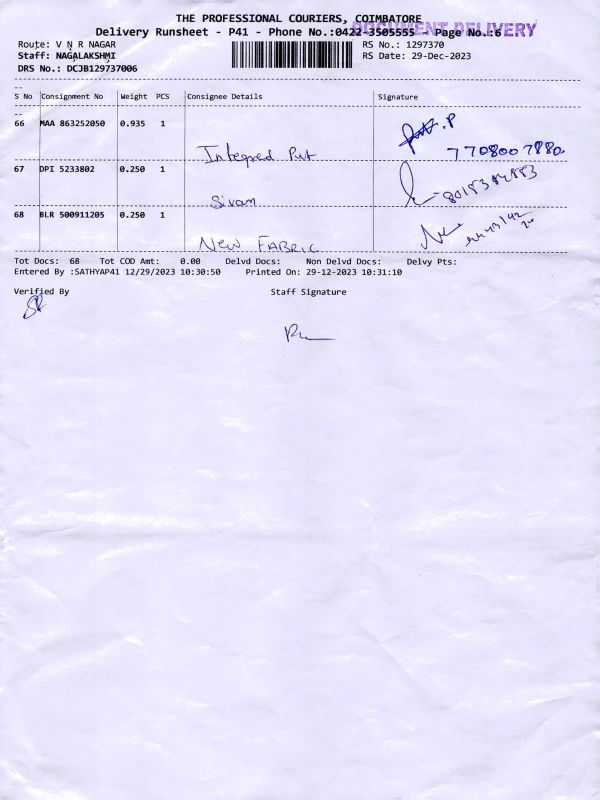 THE PROFESSIONAL COURIERS, COIMBATORE
DOCUMENT DELIVERY
Delivery Runsheet - P41 - Phone No.:0422-3505555 - Page No.:6
Route: V N R NAGAR
RS No.: 1297370
Staff: NAGALAKSHMI
RS Date: 29-Dec-2023
DRS No.: DCJB129737006
S No Consignment No Weight PCS Consignee Details Signature
66 MAA 863252050 0.935 1
7708007880
67 DPI 5233802 0.250 1
Sivam
68 BLR 500911205 0.250 1
NEW FABRIC
Tot Docs: 68 Tot COD Amt: 0.00 Delvd Docs: Non Delvd Docs: Delvy Pts:
Entered By :SATHYAP41 12/29/2023 10:30:50 Printed On: 29-12-2023 10:31:10
Verified By Staff Signature